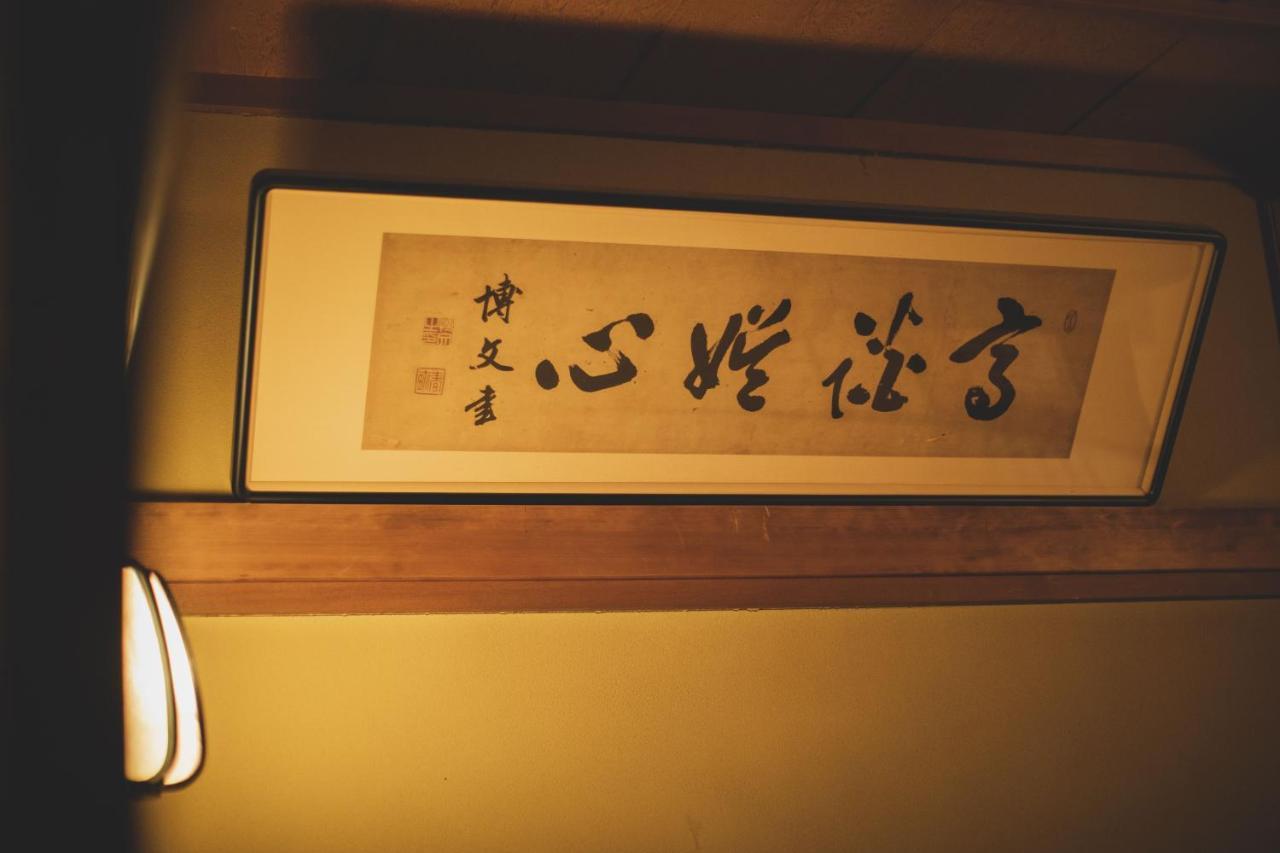 高談娛心
博文書